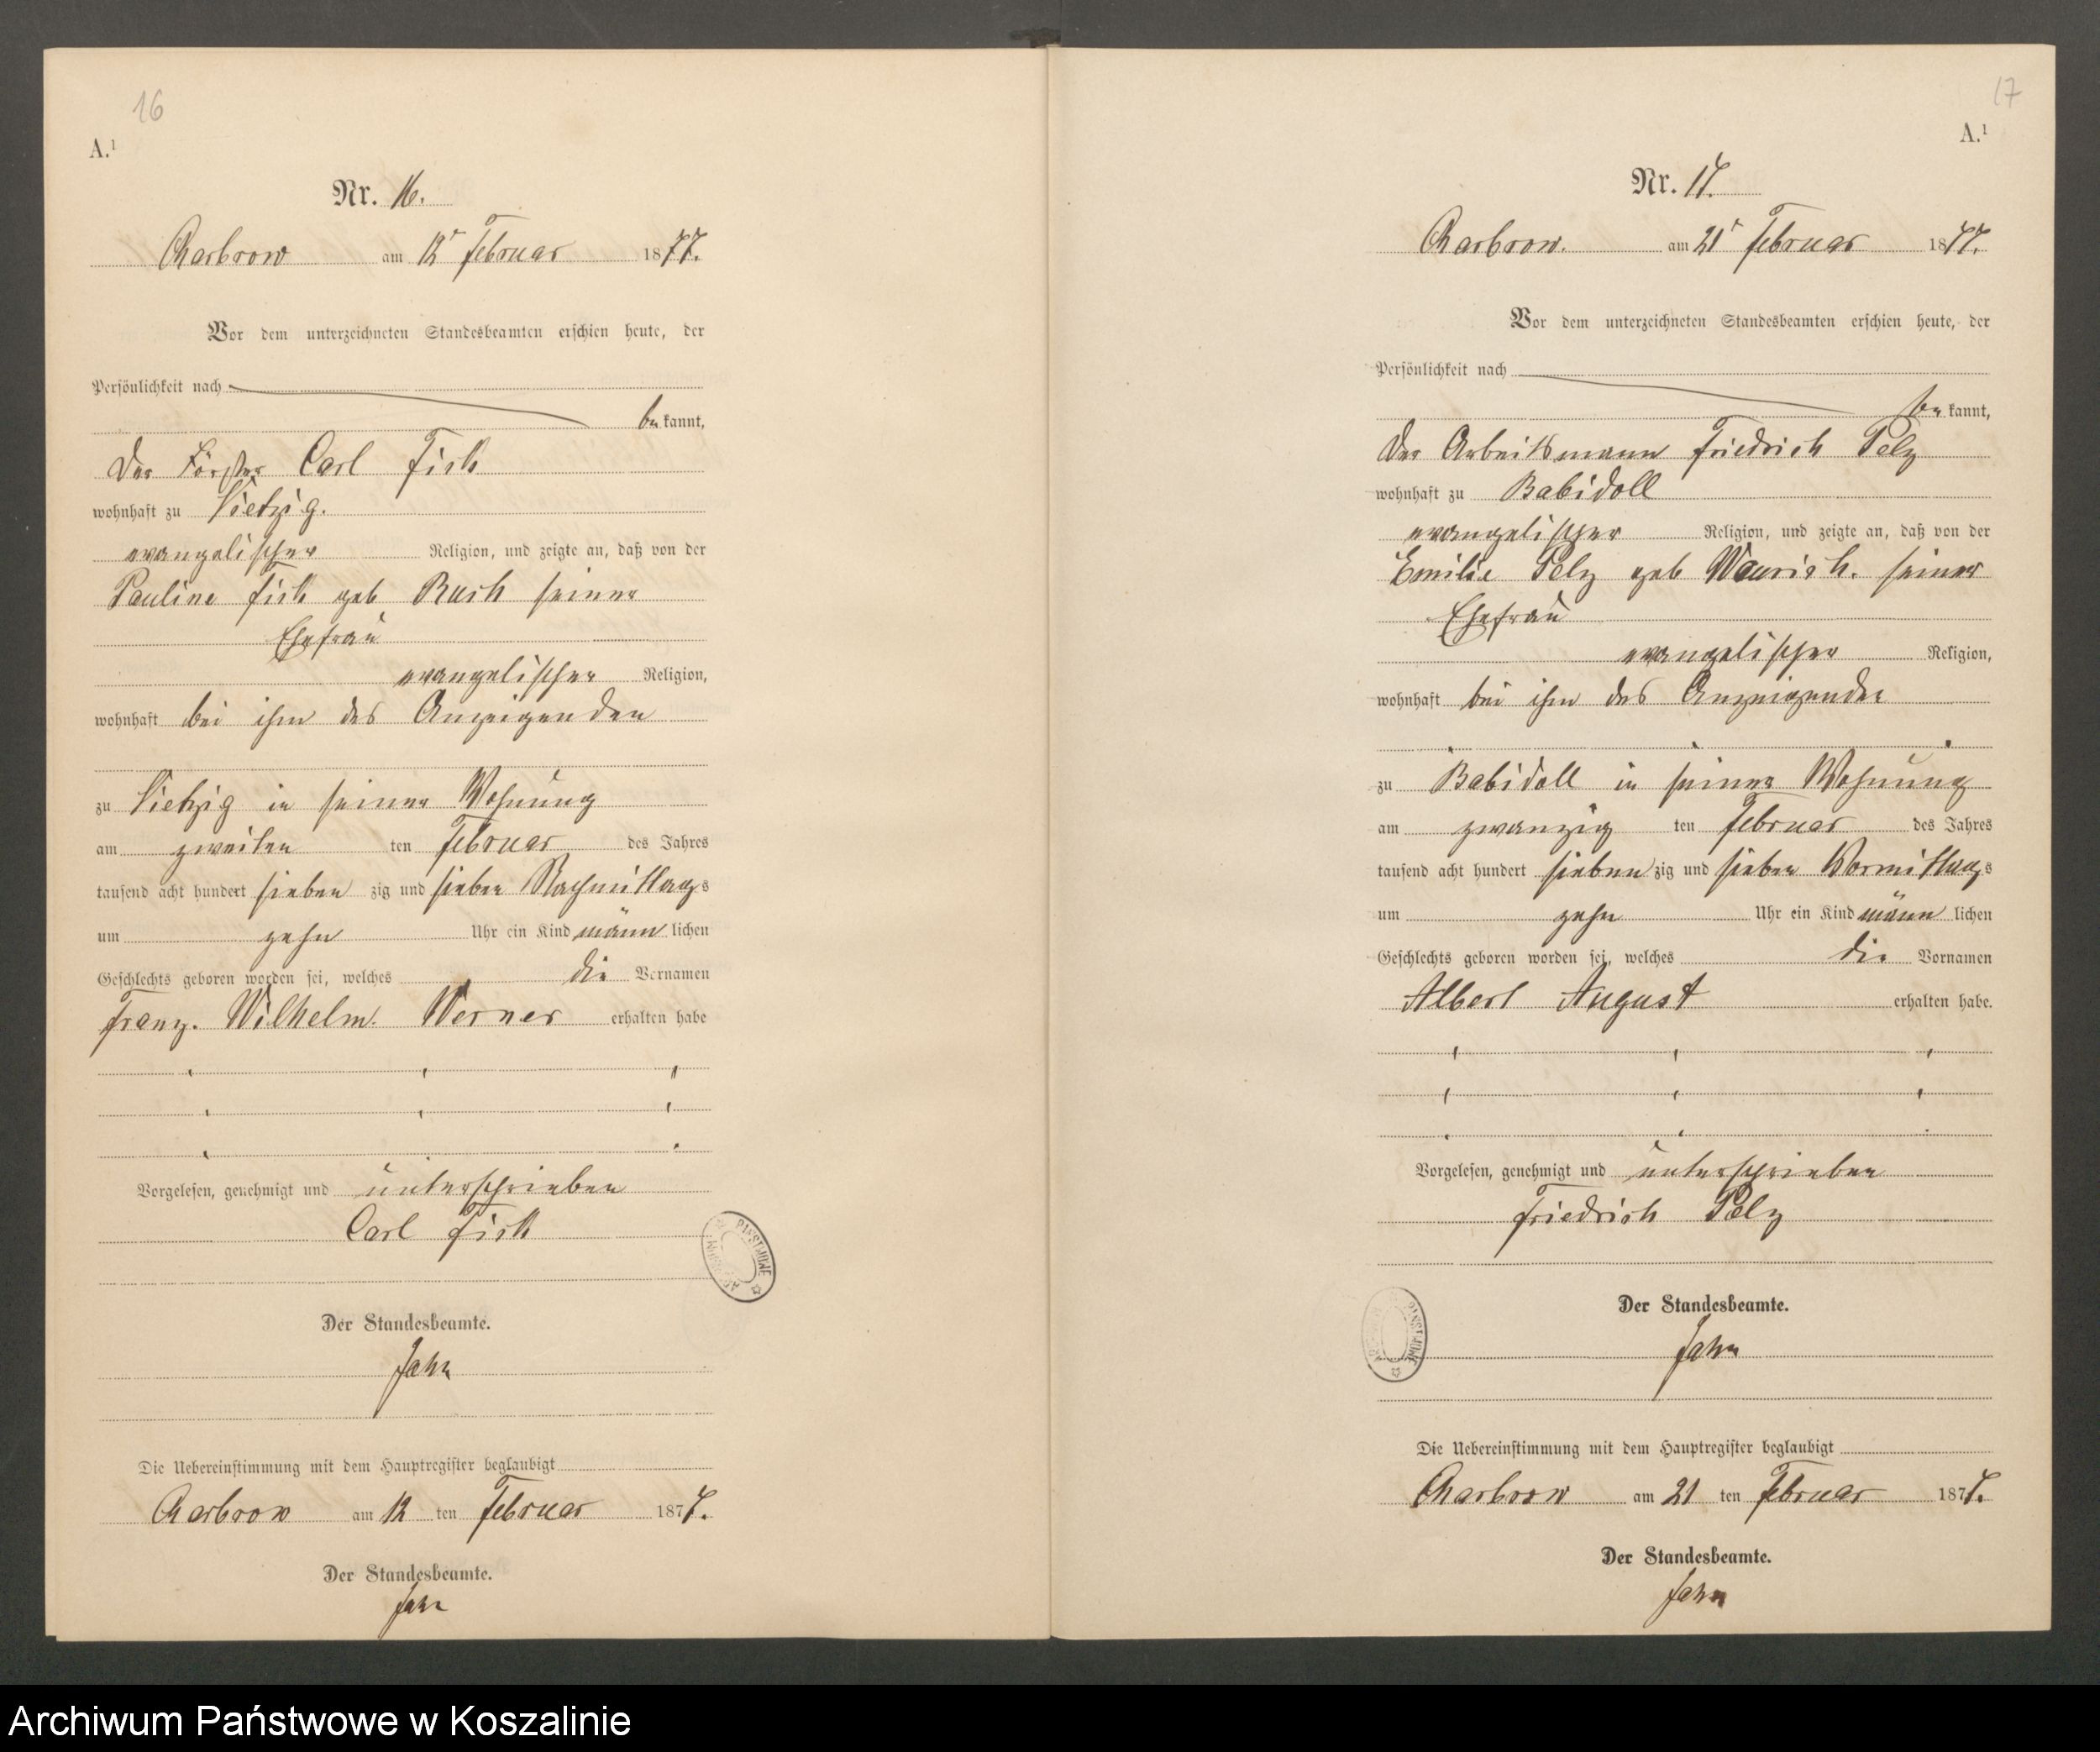 16
A.¹
Nr. 16.
Charbrow am 12ᵗ Februar 1877.
Vor dem unterzeichneten Standesbeamten erschien heute, der
Persönlichkeit nach
be kannt,
der Förster Carl Fick
wohnhaft zu Vietzig.
evangelischer Religion, und zeigte an, daß von der
Pauline Fick geb Rusch seiner
Ehefrau
evangelischer Religion,
wohnhaft bei ihm des Anzeigenden
zu Vietzig in seiner Wohnung
am zweiten ten Februar des Jahres
tausend acht hundert sieben zig und sieben Nachmittags
um zehn Uhr ein Kind männ lichen
Geschlechts geboren worden sei, welches die Vornamen
Franz. Wilhelm. Werner erhalten habe
Vorgelesen, genehmigt und unterschrieben
Carl Fick
Der Standesbeamte.
Jahn
Die Uebereinstimmung mit dem Hauptregister beglaubigt
Charbrow am 12 ten Februar 1877.
Der Standesbeamte.
Jahn
17
A.¹
Nr. 17.
Charbrow. am 21ᵗ Februar 1877.
Vor dem unterzeichneten Standesbeamten erschien heute, der
Persönlichkeit nach
be kannt,
der Arbeitsmann Friedrich Pelz
wohnhaft zu Babidoll
evangelischer Religion, und zeigte an, daß von der
Emilie Pelz geb seiner
Ehefrau
evangelischer Religion,
wohnhaft bei ihm des Anzeigenden
zu Babidoll in seiner Wohnung
am zwanzig ten Februar des Jahres
tausend acht hundert sieben zig und sieben Vormittags
um zehn Uhr ein Kind männ lichen
Geschlechts geboren worden sei, welches die Vornamen
Albert August erhalten habe.
Vorgelesen, genehmigt und unterschrieben
Friedrich Pelz
Der Standesbeamte.
Jahn
Die Uebereinstimmung mit dem Hauptregister beglaubigt
Charbrow am 21 ten Februar 1877.
Der Standesbeamte.
Jahn
Archiwum Państwowe w Koszalinie